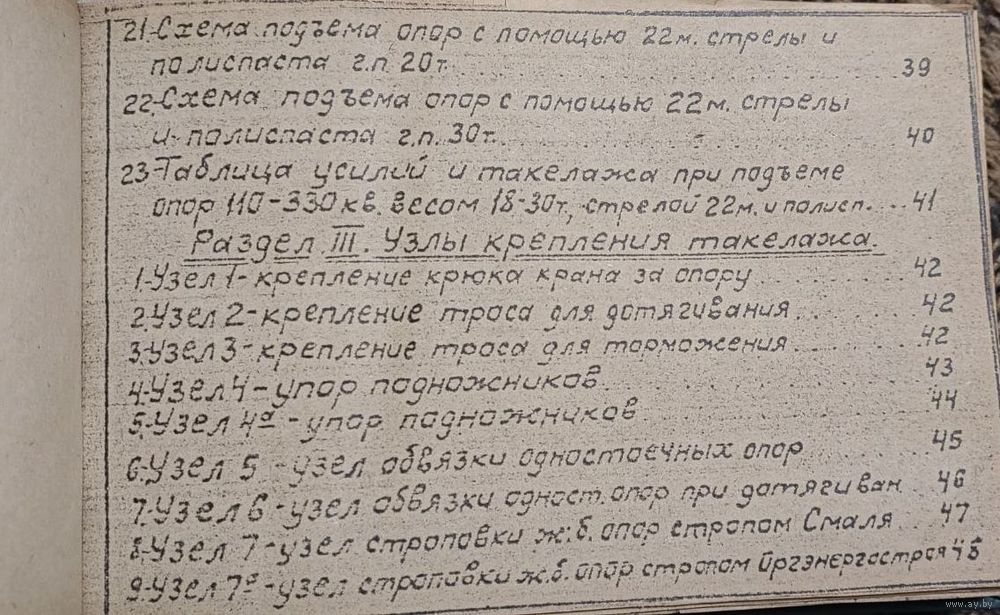 21-Схема подъема опор с помощью 22м. стрелы и
полиспаста г.п. 20т. 39
22-Схема подъема опор с помощью 22м. стрелы
и полиспаста г.п. 30т. 40
23-Таблица усилий и такелажа при подъеме
опор 110-330 кв. весом 18-30т, стрелой 22м. и полисп. 41
Раздел III. Узлы крепления такелажа.
1-Узел 1-крепление крюка крана за опору 42
2-Узел 2-крепление троса для дотягивания 42
3-Узел 3-крепление троса для торможения 42
4-Узел 4-упор подножников 43
5-Узел 4а-упор подножников 44
6-Узел 5-узел обвязки одностоечных опор 45
7-Узел 6-узел обвязки одност. опор при дотягиван 46
8-Узел 7-узел строповки ж.б. опор стропом Смаля 47
9-Узел 7а-узел строповки ж.б. опор стропом Оргэнергострoя 48
www.ay.by